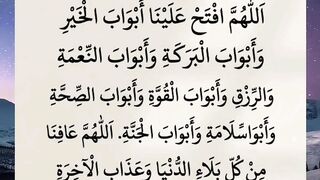 اَللّٰهُمَّ افْتَحْ عَلَيْنَا أَبْوَابَ الْخَيْرِ
وَأَبْوَابَ الْبَرَكَةِ وَأَبْوَابَ النِّعْمَةِ
وَالرِّزْقِ وَأَبْوَابَ الْقُوَّةِ وَأَبْوَابَ الصِّحَّةِ
وَأَبْوَاسَّلَامَةِ وَأَبْوَابَ الْجَنَّةِ. اَللّٰهُمَّ عَافِنَا
مِنْ كُلِّ بَلَاءِ الدُّنْيَا وَعَذَابِ الْآخِرَةِ